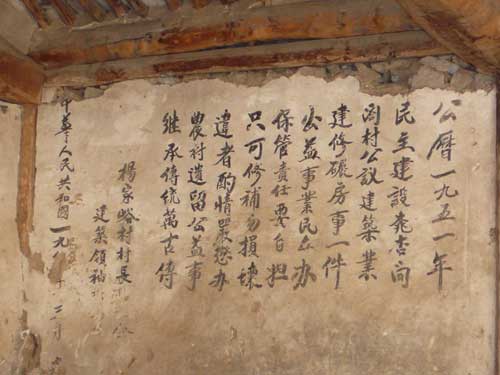 公曆一九五一年
民主建設堯吉向
閤村公議建築業
建修碾房事一件
公益事業民众办
保管責任要自担
只可修補勿損壞
違者酌情嚴懲办
農村遺留公益事
継承傳統萬古傳
楊家峪村村長
建築領袖
中華人民共和國一九 三月